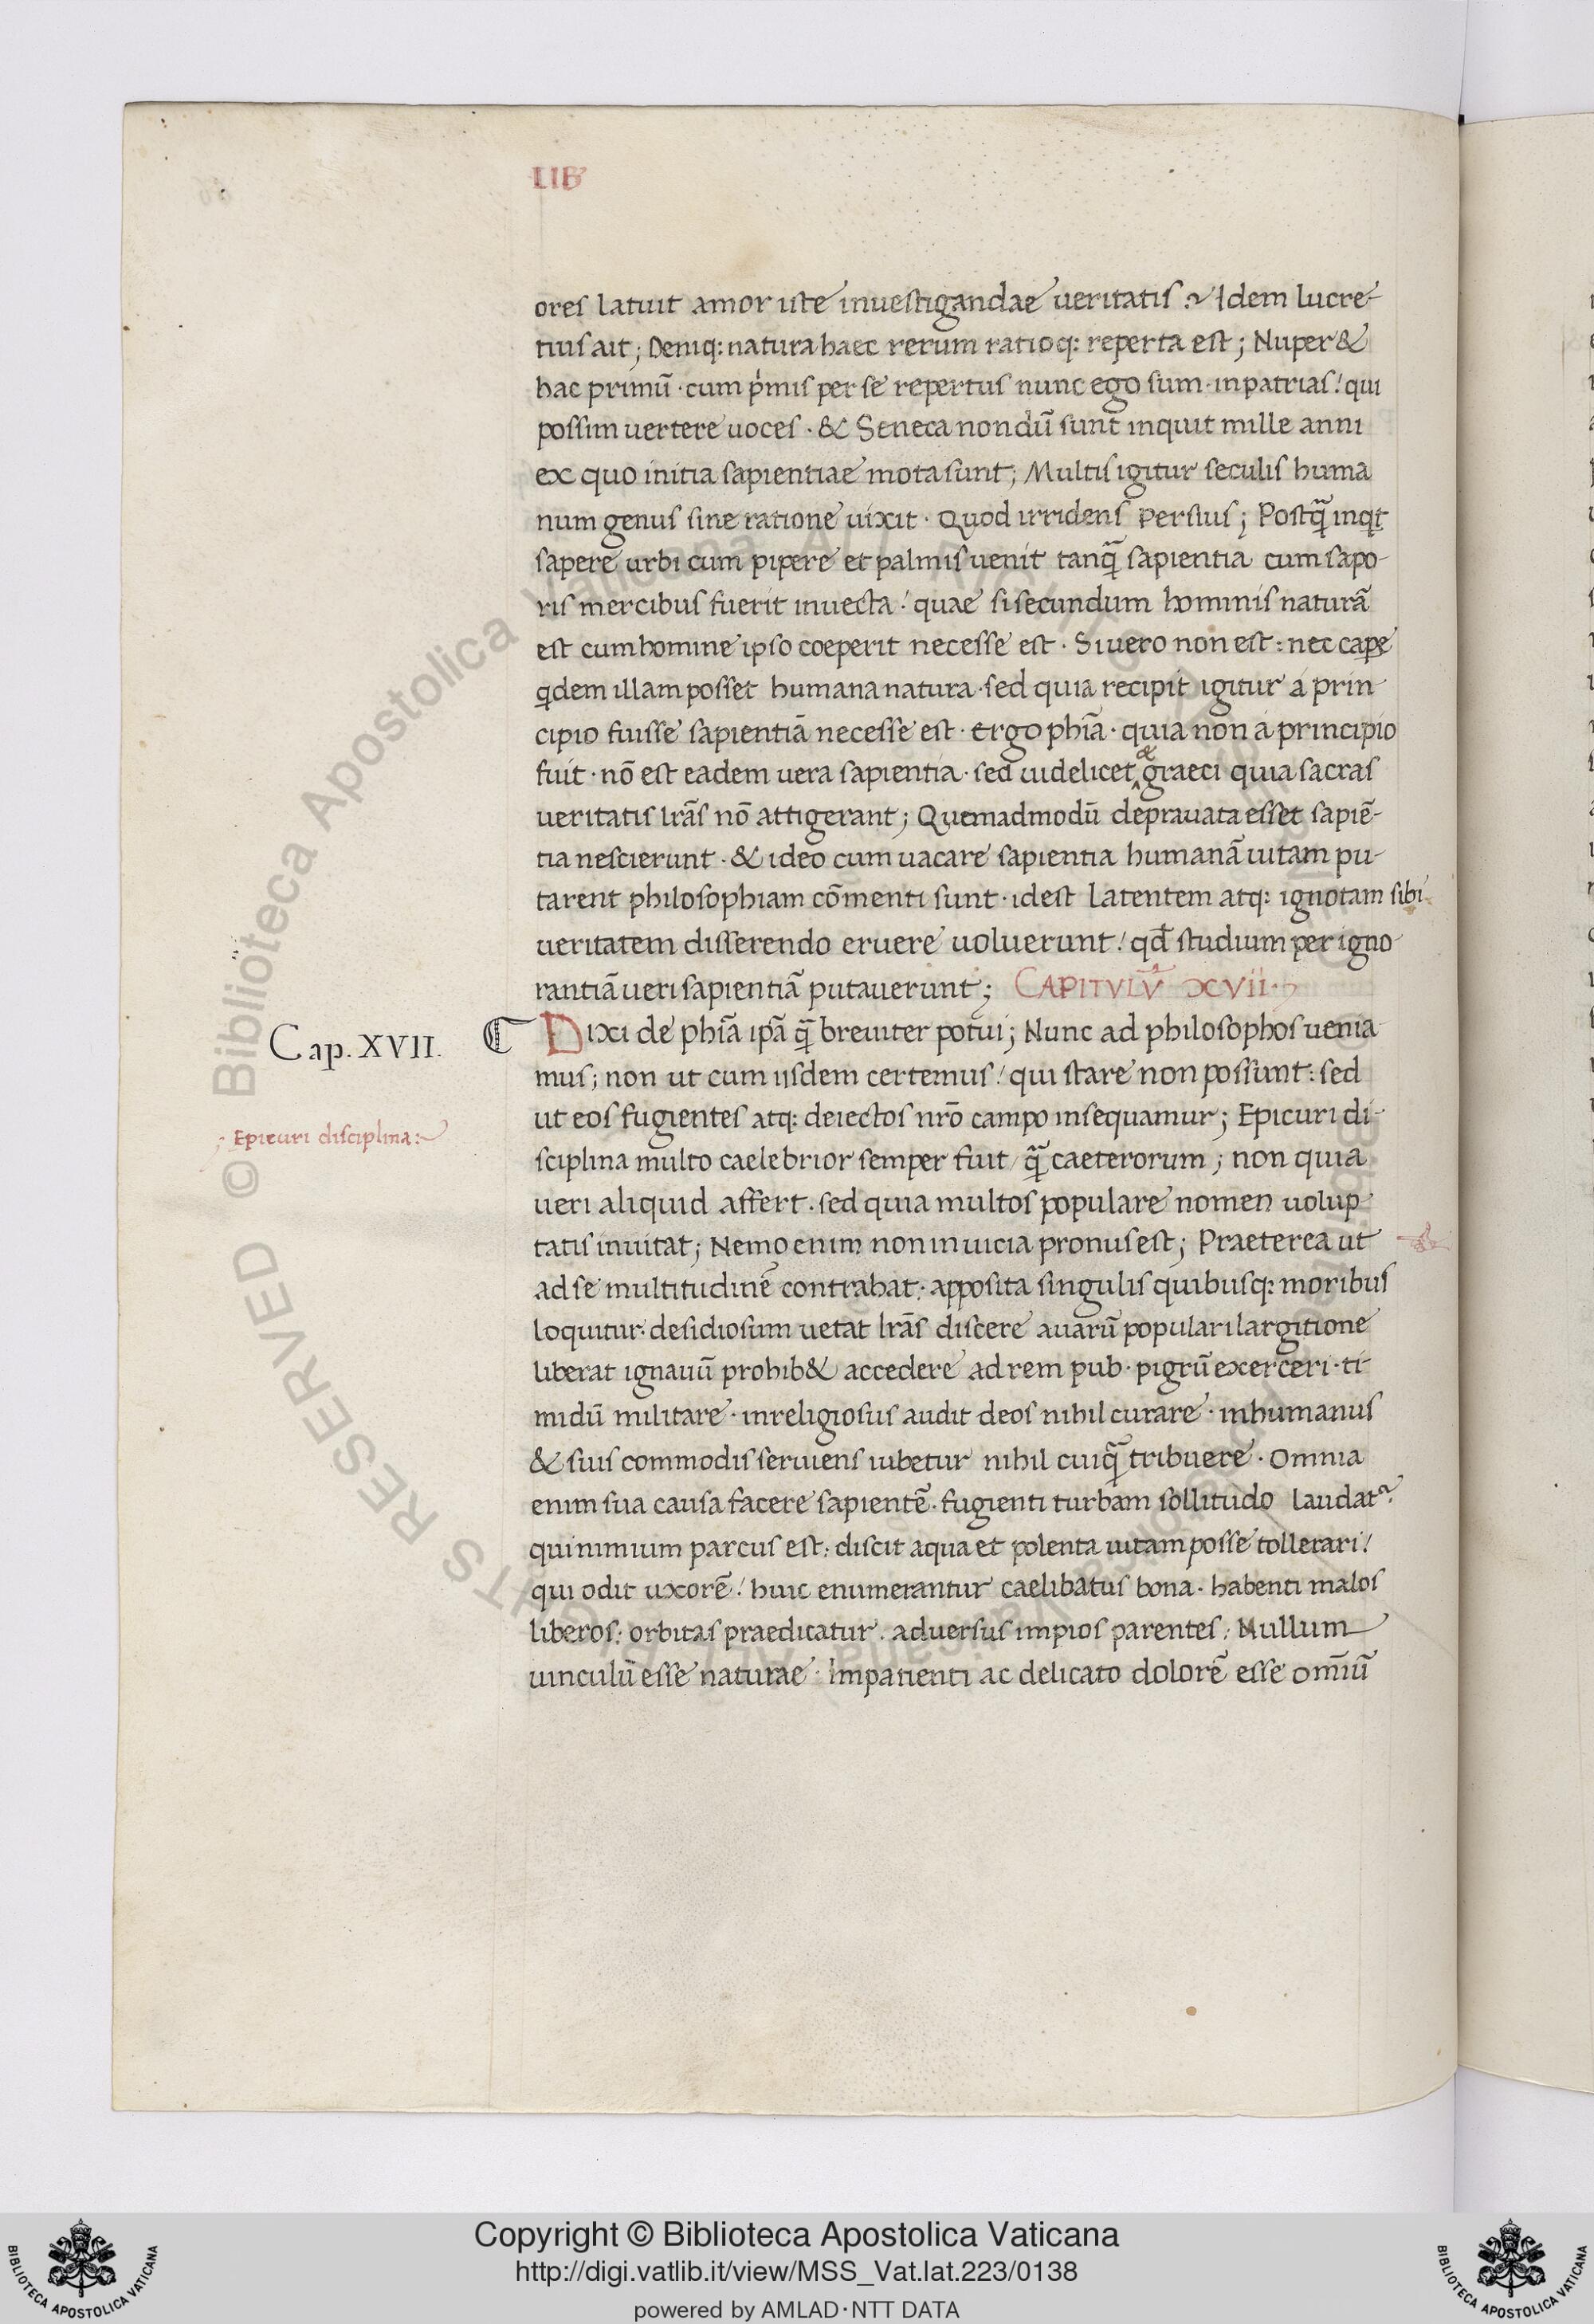 LIB
ores latuit amor iste inuestigandae ueritatis? Idem lucre-
tius ait; Deniq: natura haec rerum ratioq: reperta est; Nuper &
hac primū · cum pͥmis per se repertus nunc ego sum · in patrias! qui
possim uertere uoces · & Seneca nondū sunt inquit mille anni
ex quo initia sapientiae mota sunt; Multis igitur seculis huma
num genus sine ratione uixit · Quod irridens Persius; Postq̄ inqt
sapere urbi cum pipere et palmis uenit tanq̄ sapientia cum sapo-
ris mercibus fuerit inuecta! quae si secundum hominis naturā
est cum homine ipso coeperit necesse est · Si uero non est: nec cape
qͥdem illam posset humana natura · sed quia recipit igitur á prin
cipio fuisse sapientiā necesse est · Ergo phīa · quia non á principio
fuit · nō est eadem uera sapientia · sed uidelicet & graeci quia sacras
ueritatis lrās nō attigerant; Quemadmodū deprauata esset sapiē-
tia nescierunt · & ideo cum uacare sapientia humanā uitam pu-
tarent philosophiam cōmenti sunt · idest latentem atq: ignotam sibi
ueritatem disserendo eruere uoluerunt! qd̄ studium per igno
rantiā ueri sapientiā putauerunt; CAPITVLṼ XVII
Cap. XVII.
Dixi de phīa ipā q̄ breuiter potui; Nunc ad philosophos uenia
mus; non ut cum iisdem certemus! qui stare non possunt: sed
ut eos fugientes atq: deiectos nrō campo insequamur; Epicuri di-
Epicuri disciplina:
sciplina multo caelebrior semper fuit / q̄ caeterorum; non quia
ueri aliquid affert · sed quia multos populare nomen uolup
tatis inuitat; Nemo enim non in uicia pronus est; Praeterea ut
ad se multitudinē contrahat: apposita singulis quibusq: moribus
loquitur · desidiosum uetat lrās discere auarū populari largitione
liberat ignauū prohib& accedere ad rem pub · pigrū exerceri · ti
midū militare · inreligiosus audit deos nihil curare · inhumanus
& suis commodis seruiens iubetur nihil cuiq̄ tribuere · Omnia
enim sua causa facere sapientē · fugienti turbam sollitudo laudatͬ
qui nimium parcus est: discit aqua et polenta uitam posse tollerari!
qui odit uxorē! huic enumerantur caelibatus bona · habenti malos
liberos: orbitas praedicatur · aduersus impios parentes: Nullum
uinculū esse naturae · impatienti ac delicato dolorē esse omīū
© Biblioteca Apostolica Vaticana ALL RIGHTS RESERVED
Copyright © Biblioteca Apostolica Vaticana
http://digi.vatlib.it/view/MSS_Vat.lat.223/0138
powered by AMLAD·NTT DATA
BIBLIOTECA APOSTOLICA VATICANA
BIBLIOTECA APOSTOLICA VATICANA